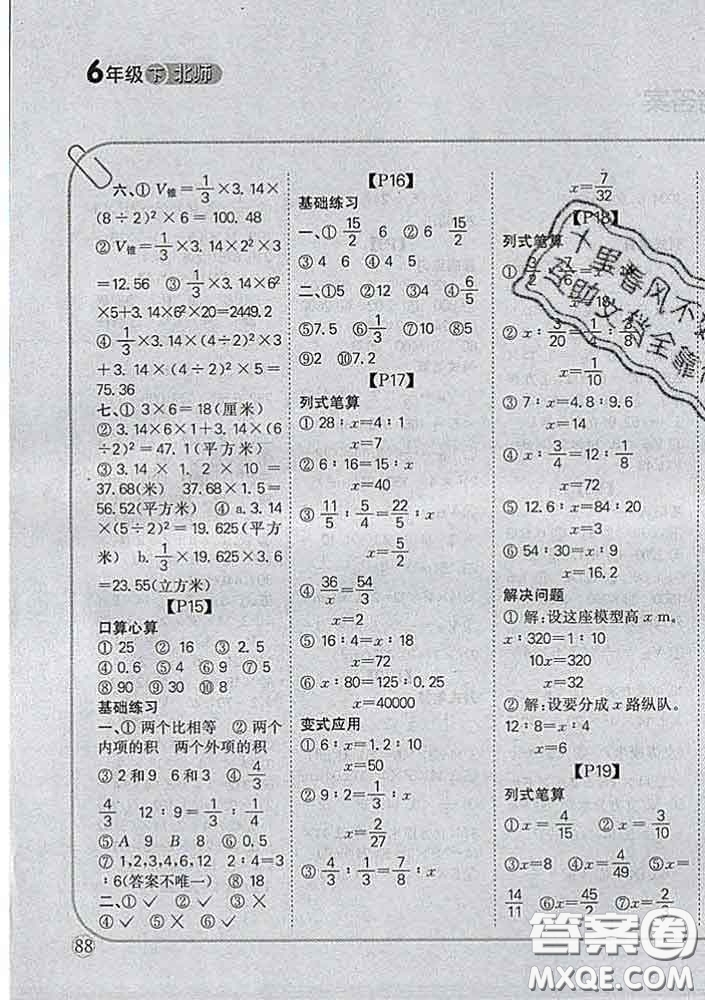 6年级 下 北师
六、① V锥=1/3×3.14×
(8÷2)²×6=100.48
② V锥=1/3×3.14×2²×3
=12.56 ③ 1/3×3.14×6²
×5+3.14×6²×20=2449.2
④ 1/3×3.14×(4÷2)²×1
+3.14×(4÷2)²×
75.36
七、① 3×6=18(厘米)
② 3.14×6×1+3.14×(6
÷2)²=47.1(平方米)
③ 3.14×1.2×10=
37.68(米) 37.68×1.5=
56.52(平方米) ④ a. 3.14
×(5÷2)²=19.625(平方
米) b. 1/3×19.625×3.6
=23.55(立方米)
【P15】
口算心算
① 25 ② 16 ③ 2.5
④0.6 ⑤ 15 ⑥4 ⑦9
⑧90 ⑨30 ⑩8
基础练习
一、① 两个比相等 ② 两个
内项的积 两个外项的积
③ 2和9 6和3 ④ 4/3
4/3 12∶9=1/3∶1/4
⑤ A 9 B 8 ⑥0.5
⑦ 1,2,3,4,6,12 2∶4=3
∶6(答案不唯一) ⑧ 18
二、①✓ ②✓ ③✕
④✕ ⑤✓ ⑥✓
88
【P16】
基础练习
一、① 15/2 6 ② 6 15/2
③ 4 6 ④ 4 15
二、①5 ②12 ③4 ④ 6/5
⑤7.5 ⑥ 1/3 ⑦10 ⑧6
⑨2 ⑩7.2
【P17】
列式笔算
① 28∶x=4∶1
x=7
② 6∶16=15∶x
x=40
③ 11/5∶5/4=22/5∶x
x=5/2
④ 36/x=54/3
x=2
⑤ 16∶4=x∶18
x=72
⑥ x∶80=125∶0.25
x=40000
变式应用
① 6∶x=1.2∶10
x=50
② 9∶2=1/3∶x
x=2/27
③ 4/3∶1/x=7/8∶1/6
x=7/32
【P18】
列式笔算
②x∶3/20=1/3∶
x=1/10
③ 7∶x=4.8∶9.6
x=14
④ x∶3/4=12∶1/8
x=72
⑤ 12.6∶x=84∶20
x=3
⑥ 54∶30=x∶9
x=16.2
解决问题
① 解:设这座模型高 x m。
x∶320=1∶10
10x=320
x=32
② 解:设要分成 x 路纵队。
12∶8=x∶4
x=6
【P19】
列式笔算
①x=4/15 ②x=3/10
③x=8 ④x=4/49 ⑤x=
14/11 ⑥x=45/2 ⑦x=2/
十里春风不
文档全靠
答案圈
MXQE.COM